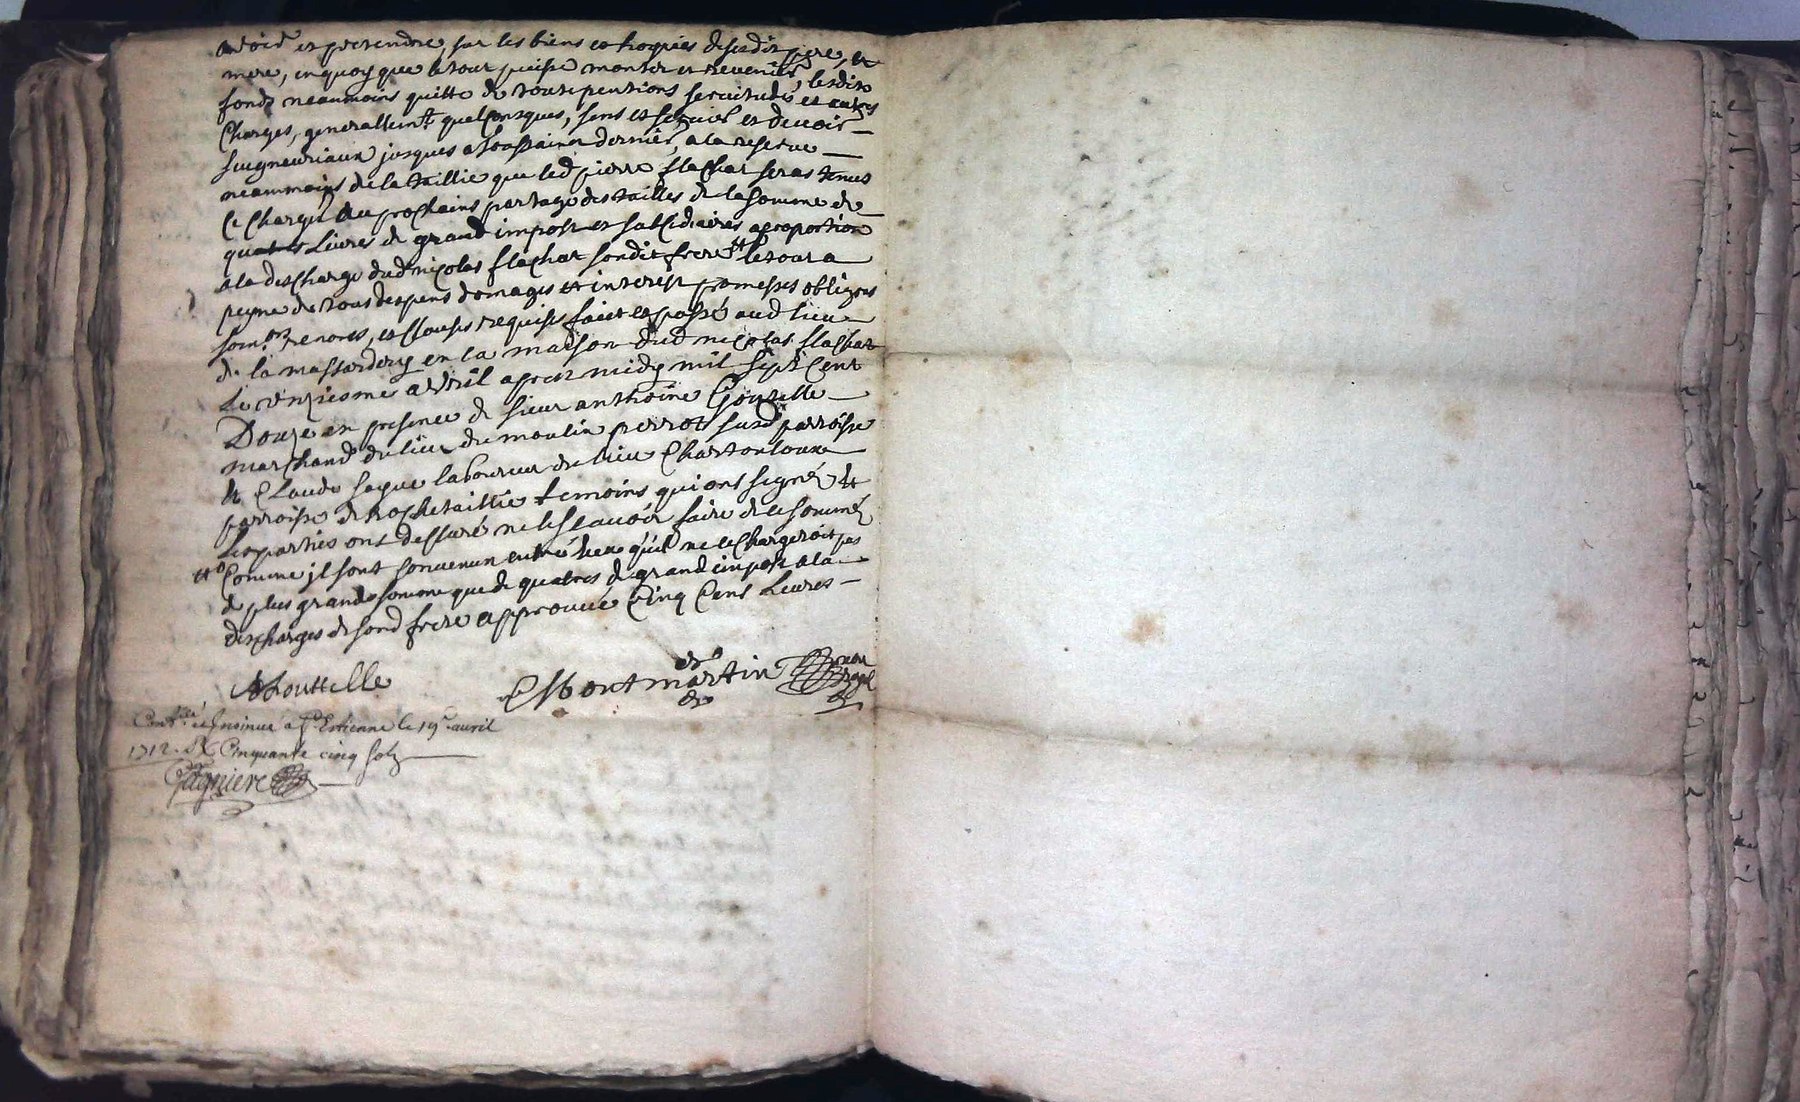 avoir et pretendre, sur les biens et hoyries desesdit pere, et
mere, en quoy que le tout puisse monter et revenir, lesdits
fonds neanmoins quitte de toute pentions servitudes et autres
Charges, generallem.t quelconsques, sens et servis et devoir
seigneuriaux jusques a Toussainct dernier, a la reserve
neammoins de la taillie que led pierre flachat seras tenus
ce charger au prochains partage des tailles de la somme de
quatres Livres de grand impost et subcidiaires a proportion
a la descharge dud nicolas flachat sondit frere # le tout a
peyne de tous despens domages et interest promesses obligons
soub.ons renons, et clauses requises faict et passé aud lieu
de la massardery en la maison dud nicolas flachat
Le onziesme avril apres midy mil sept Cent
Douze en presence de sieur anthoine Gouttelle
marchand du lieu du moulin perrot susd parroisse
et Claude laboureur du lieu
parroisse de Rochetaillie temoins qui ont signé et
Les parties ont dessuré ne le scavoir faire de ce sommé
# Comme jl sont convenun entre heux quil ne ce chargeroit pas
de plus grande somme que de quatres de grand impost a la
descharges de sond frere approuvé Cinq Cens Livres
AGouttelle Montmartin
Cont.llé et Insinué a St Estienne le 19e avril
1712. Cinquante cinq solz